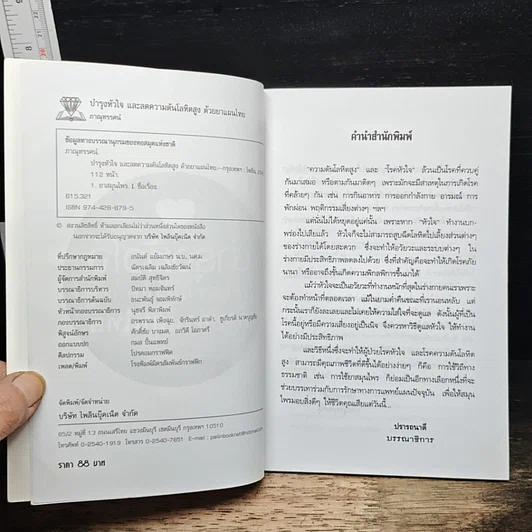 บำรุงหัวใจ และลดความดันโลหิตสูง ด้วยยาแผนไทย
ภาณุทรรศน์
ข้อมูลทางบรรณานุกรมของหอสมุดแห่งชาติ
ภาณุทรรศน์.
บำรุงหัวใจ และลดความดันโลหิตสูง ด้วยยาแผนไทย.--กรุงเทพฯ : ไพลิน,
112 หน้า.
1. ยาสมุนไพร. I. ชื่อเรื่อง.
615.321
ISBN 974-428-879-5
© สงวนลิขสิทธิ์ ห้ามลอกเลียนไม่ว่าส่วนหนึ่งส่วนใดของหนังสือ
นอกจากจะได้รับอนุญาตจาก บริษัท ไพลินบุ๊คเน็ต จำกัด
ที่ปรึกษากฎหมาย อนันต์ แย้มเกษร น.บ. นศ.ม.
ประธานกรรมการ ฉัตรเฉลิม เฉลิมชัยวัฒน์
ผู้จัดการสำนักพิมพ์ สมบัติ สุทธิจิตร
บรรณาธิการบริหาร ปัทมา หอมจันทร์
บรรณาธิการต้นฉบับ ธนะพันธุ์ จอมพิทักษ์
หัวหน้ากองบรรณาธิการ นุชรี พิลาพันธ์
กองบรรณาธิการ
พิสูจน์อักษร
ออกแบบปก กมล ปิ่นแพทย์
ศิลปกรรม โปรคอมกราฟฟิค
เพลต/พิมพ์
จัดพิมพ์/จัดจำหน่าย
บริษัท ไพลินบุ๊คเน็ต จำกัด
65/2 หมู่ที่ 13 ถนนเสรีไทย แขวงมีนบุรี เขตมีนบุรี กรุงเทพฯ 10510
โทรศัพท์ 0-2540-1919 โทรสาร 0-2540-7651 E-mail :
ราคา 88 บาท
คำนำสำนักพิมพ์
"ความดันโลหิตสูง" และ "โรคหัวใจ" ล้วนเป็นโรคที่ควบคู่
กันมาเสมอ หรือตามกันมาติดๆ เพราะมักจะมีสาเหตุในการเกิดโรค
ที่คล้ายๆ กัน เช่น การกินอาหาร การออกกำลังกาย อารมณ์ การ
พักผ่อน พฤติกรรมเสี่ยงต่างๆ ฯลฯ
แต่นั่นไม่ได้หยุดอยู่แค่นั้น เพราะหาก "หัวใจ" ทำงานบก-
พร่องไปเสียแล้ว หัวใจก็จะไม่สามารถสูบฉีดโลหิตไปเลี้ยงส่วนต่างๆ
ของร่างกายได้โดยสะดวก ซึ่งจะทำให้อวัยวะและระบบต่างๆ ใน
ร่างกายมีประสิทธิภาพลดลงไปด้วย ซึ่งที่สำคัญคือจะทำให้เกิดโรคภัย
นานา หรืออาจถึงขั้นเกิดความพิกลพิการขึ้นมาได้
แม้ว่าหัวใจจะเป็นอวัยวะที่ทำงานหนักที่สุดในร่างกายคนเราเพราะ
จะต้องทำหน้าที่ตลอดเวลา แม้ในยามค่ำคืนขณะที่เรานอนหลับ แต่
กระนั้นเราก็ยังคิดว่าเรานั้นแทบจะไม่เคยให้ความใส่ใจที่จะดูแล ดังนั้นผู้ที่เป็น
โรคนี้อยู่หรือมีความเสี่ยงอยู่เป็นนิจ จึงควรหาวิธีดูแลหัวใจ ให้ทำงาน
ได้อย่างมีประสิทธิภาพ
และวิธีหนึ่งซึ่งจะทำให้ผู้ป่วยโรคหัวใจ และโรคความดันโลหิต
สูง สามารถมีคุณภาพชีวิตที่ดีขึ้นได้อย่างง่ายๆ ก็คือ การใช้วิถีทาง
ธรรมชาติ เช่น การใช้ยาสมุนไพร ก็ย่อมเป็นอีกทางเลือกหนึ่งที่จะ
ช่วยบรรเทาร่วมกับการรักษาทางการแพทย์แผนปัจจุบัน เพื่อให้สมุน
ไพรมอบสิ่งดีๆ ให้ชีวิตคุณเสียแต่วันนี้...
ปรารถนาดี
บรรณาธิการ